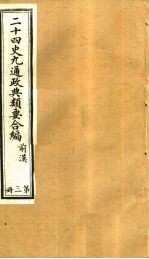 二十四史九通政典類要合編
前漢
第三冊